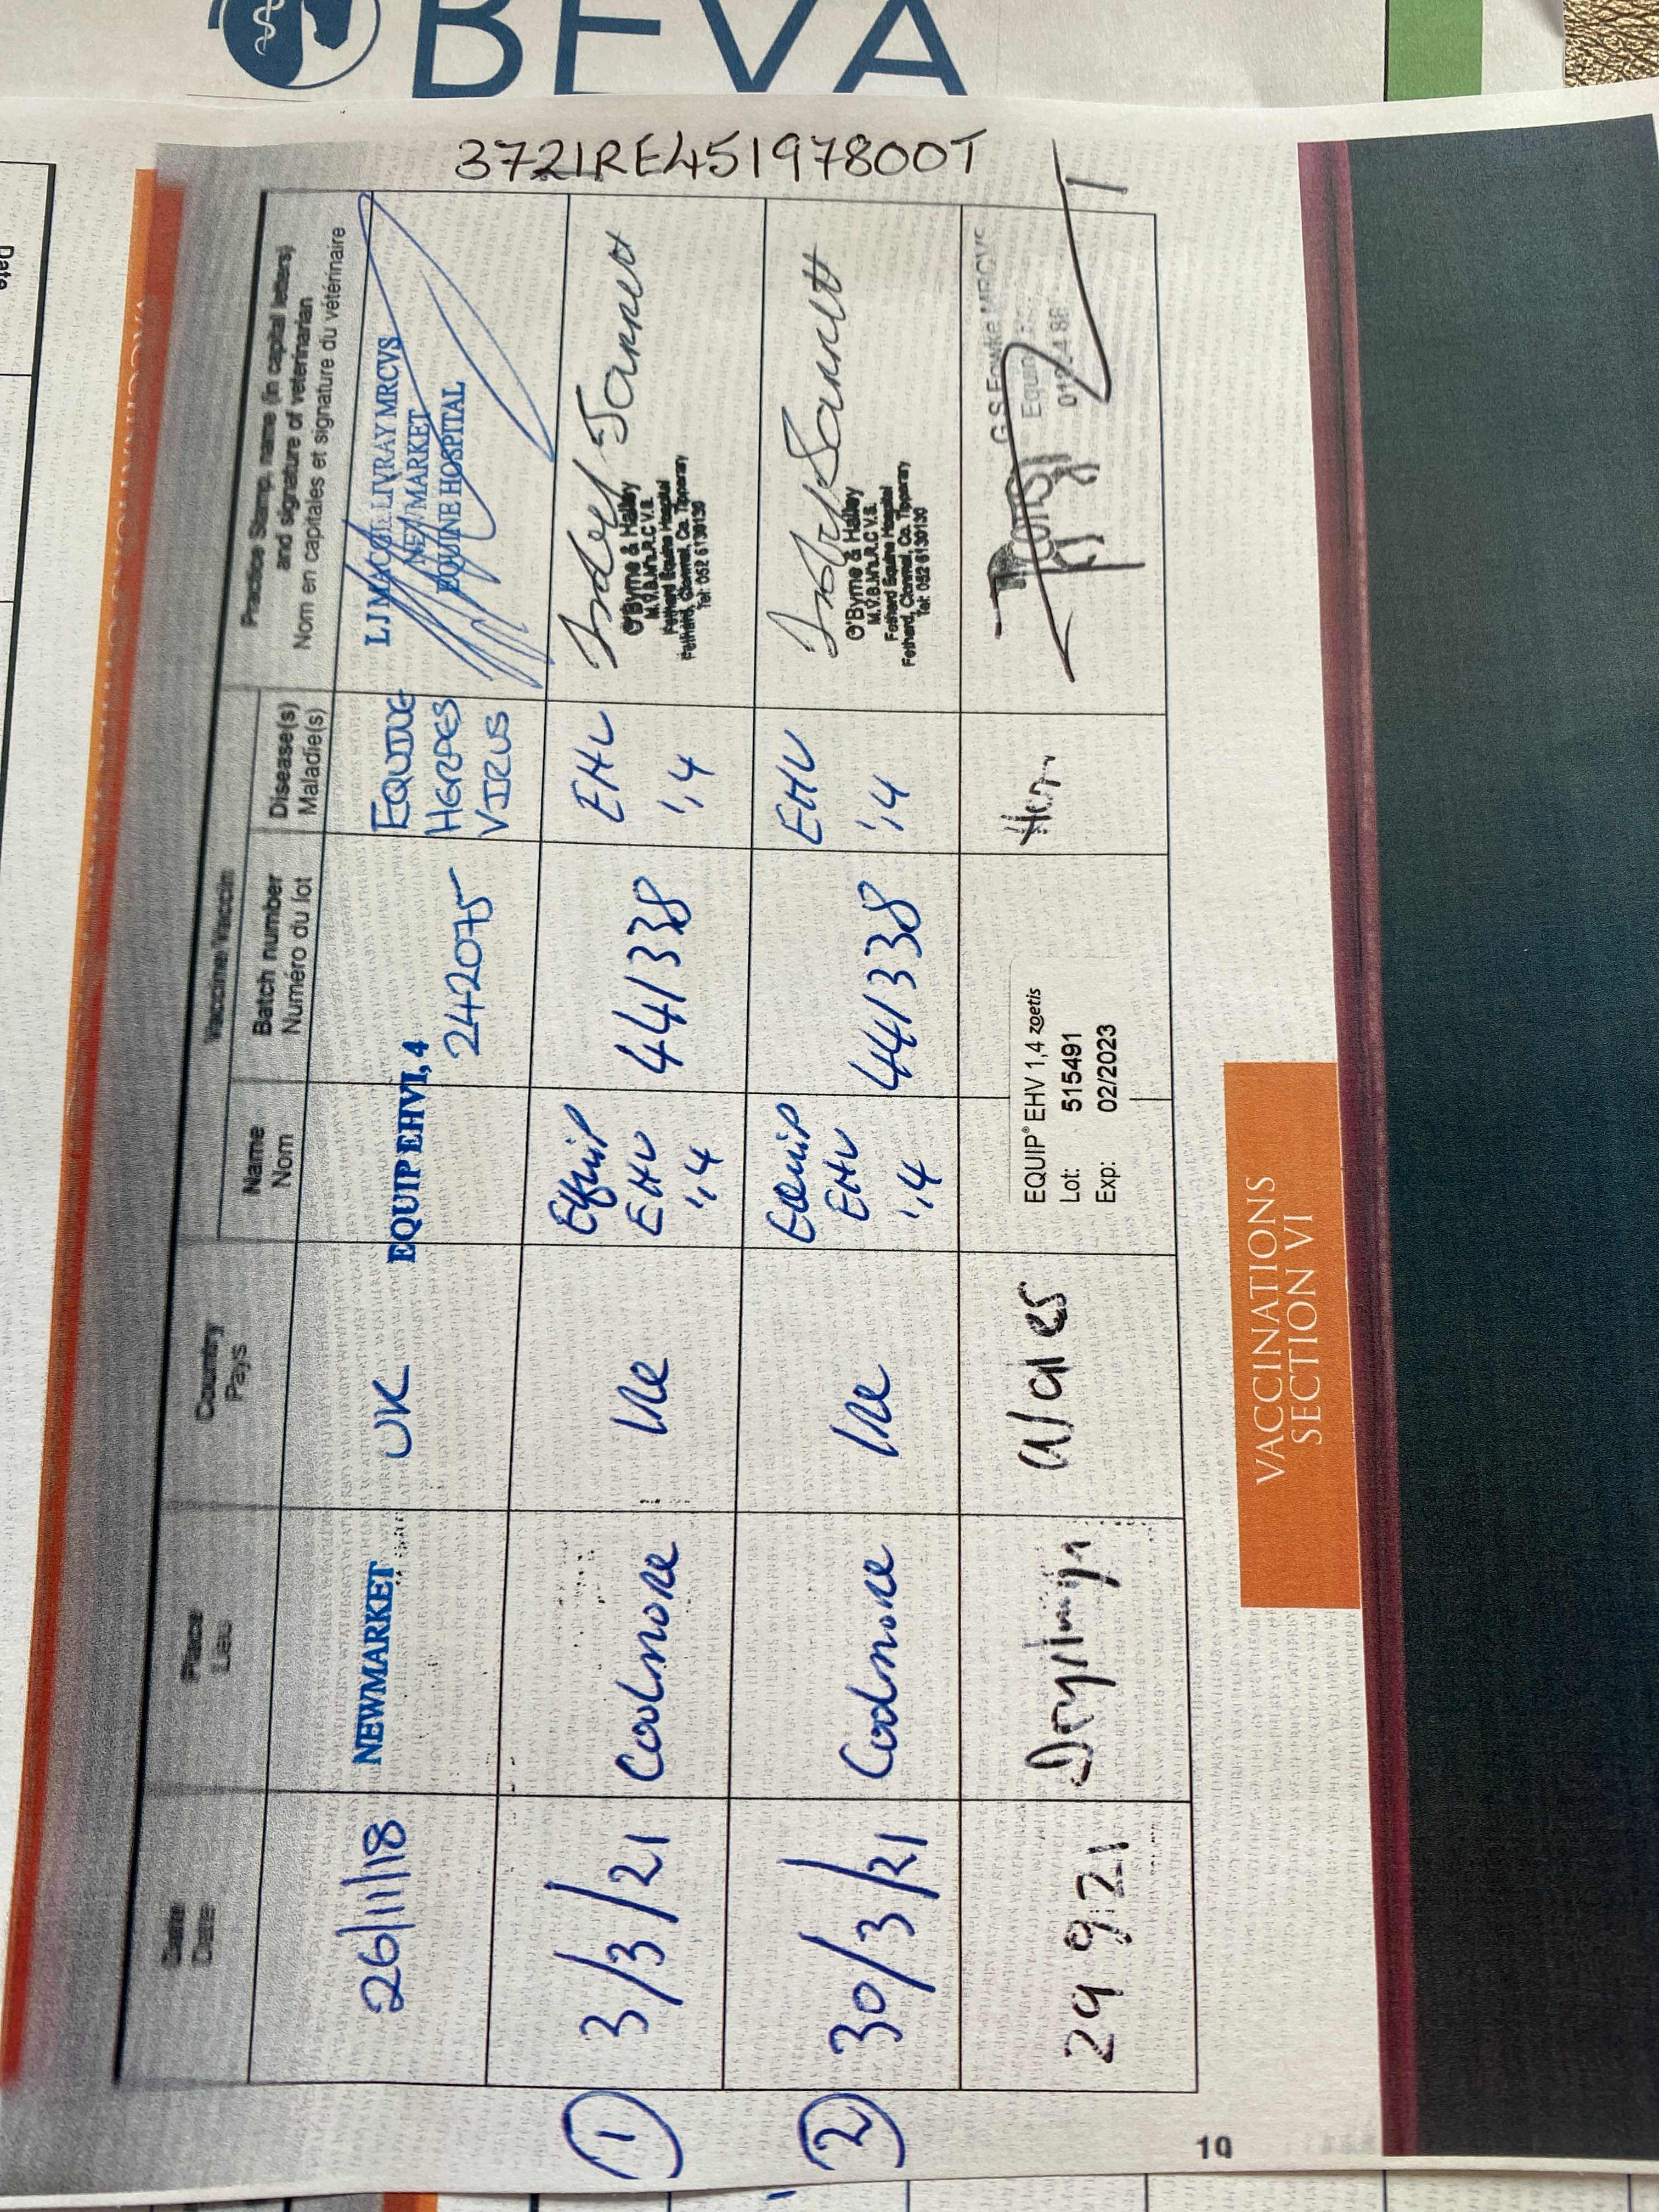 BEVA
372IRE45197800T
Date
Date
Date
Place
Lieu
Country
Pays
Vaccine/Vaccin
Name
Nom
Batch number
Numéro du lot
Disease(s)
Maladie(s)
Practice Stamp, name (in capital letters)
and signature of veterinarian
Nom en capitales et signature du vétérinaire
26/11/18
NEWMARKET
UK
EQUIP EHV1,4
242075
EQUINE
HERPES
VIRUS
MRCVS
NEWMARKET
EQUINE HOSPITAL
1
3/3/21
Coolmore
Ire
Equip
EHV
1,4
441338
EHV
1,4
O'Byrne & Halley
M.V.B. M.R.C.V.S.
Fethard Equine Hospital
Fethard, Clonmel, Co. Tipperary
Tel: 052 6130130
2
30/3/21
Coolmore
Ire
Equip
EHV
1,4
441338
EHV
1,4
O'Byrne & Halley
M.V.B. M.R.C.V.S.
Fethard Equine Hospital
Fethard, Clonmel, Co. Tipperary
Tel: 052 6130130
29 9 21
Wales
EQUIP® EHV 1,4 zoetis
Lot: 515491
Exp: 02/2023
G.S.Fowke MRCVS
10
VACCINATIONS
SECTION VI